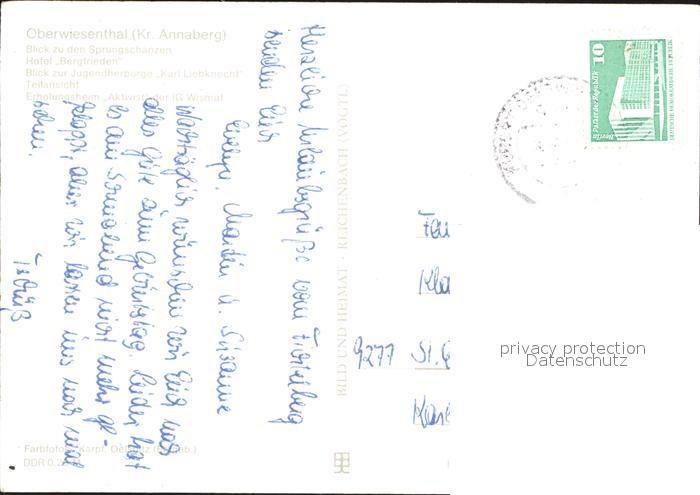 Oberwiesenthal (Kr. Annaberg)
Blick zu den Sprungschanzen
Hotel „Bergfrieden"
Blick zur Jugendherberge „Karl Liebknecht"
Teilansicht
Erholungsheim „Aktivist" der IG Wismut
Herzliche Urlaubsgrüße vom Fichtelberg
senden Euch
Martin u. Susanne
Nachträglich wünschen wir Euch noch
alles Gute zum Geburtstag. Leider hat
es am Sonnabend nicht mehr ge-
klappt, aber wir lassen uns noch mal
sehen.
Tschüß
BILD UND HEIMAT · REICHENBACH (VOGTL)
Farbfoto:
DDR
10
Berlin Palast der Republik
DEUTSCHE DEMOKRATISCHE REPUBLIK
Fam
Kla
9277 St.
Kar
privacy protection
Datenschutz